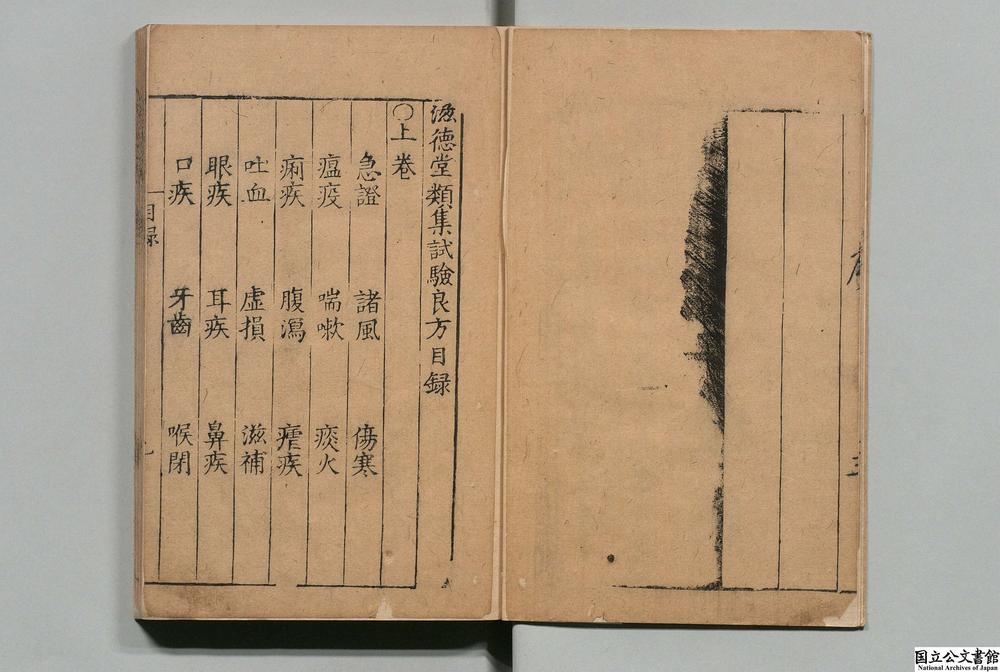 德堂類集試驗良方目録
〇上卷
急證 諸風 傷寒
瘟疫 喘嗽 痰火
痢疾 腹瀉 瘧疾
吐血 虛損 滋補
眼疾 耳疾 鼻疾
口疾 牙齒 喉閉
目録
国立公文書館
National Archives of Japan